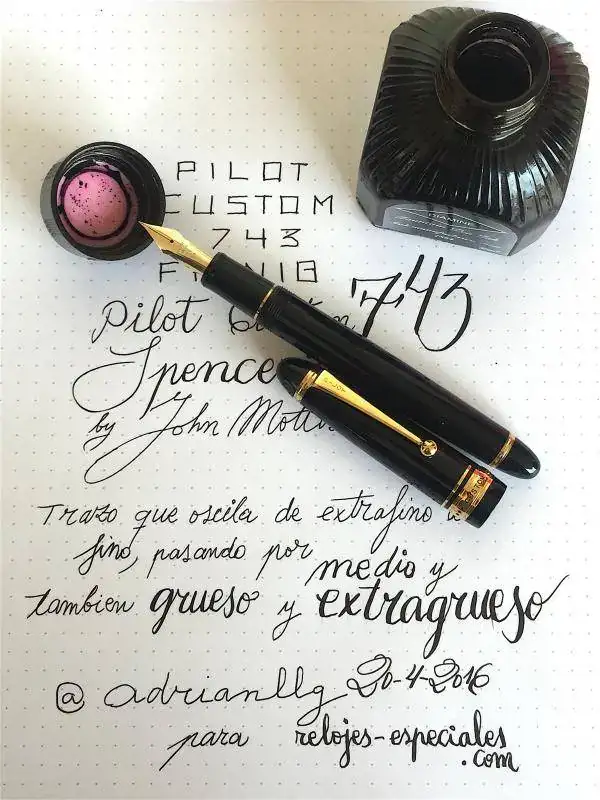 PILOT
CUSTOM
743
Pilot
743
by John
Trazo que oscila de extrafino
fino, pasando por
medio y
tambien grueso y extragrueso
@adrianllg 20-4-2016
para relojes-especiales
.com
DIAMINE